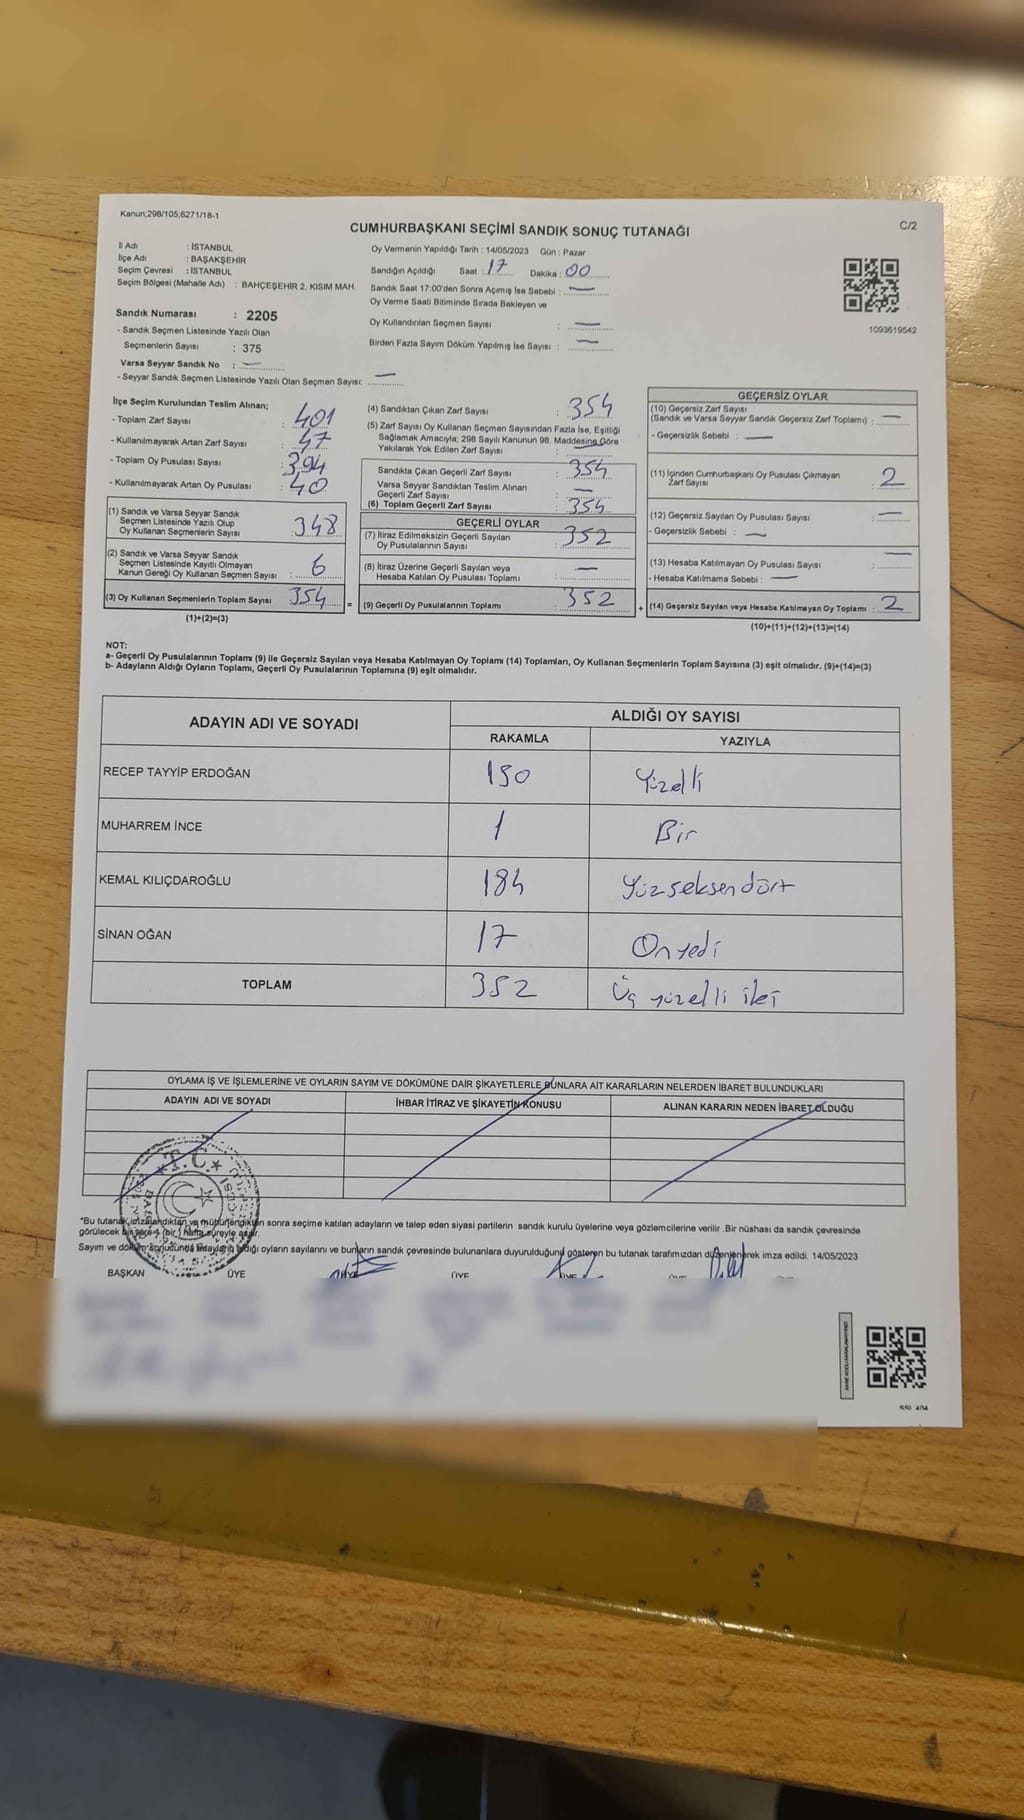 Kanun;298/105;6271/18-1
CUMHURBAŞKANI SEÇİMİ SANDIK SONUÇ TUTANAĞI
C/2
İl Adı : İSTANBUL
İlçe Adı : BAŞAKŞEHİR
Seçim Çevresi : İSTANBUL
Seçim Bölgesi (Mahalle Adı) : BAHÇEŞEHİR 2. KISIM MAH.
Oy Vermenin Yapıldığı Tarih : 14/05/2023 Gün : Pazar
Sandığın Açıldığı Saat : 17 Dakika : 00
Sandık Saat 17:00'den Sonra Açımış İse Sebebi : —
Oy Verme Saati Bitiminde Sırada Bekleyen ve
Oy Kullandırılan Seçmen Sayısı : —
Birden Fazla Sayım Döküm Yapılmış İse Sayısı : —
1093619542
Sandık Numarası : 2205
- Sandık Seçmen Listesinde Yazılı Olan
Seçmenlerin Sayısı : 375
Varsa Seyyar Sandık No : —
- Seyyar Sandık Seçmen Listesinde Yazılı Olan Seçmen Sayısı: —
İlçe Seçim Kurulundan Teslim Alınan;
- Toplam Zarf Sayısı : 401
- Kullanılmayarak Artan Zarf Sayısı : 47
- Toplam Oy Pusulası Sayısı : 394
- Kullanılmayarak Artan Oy Pusulası : 40
(1) Sandık ve Varsa Seyyar Sandık
Seçmen Listesinde Yazılı Olup
Oy Kullanan Seçmenlerin Sayısı : 348
(2) Sandık ve Varsa Seyyar Sandık
Seçmen Listesinde Kayıtlı Olmayan
Kanun Gereği Oy Kullanan Seçmen Sayısı : 6
(3) Oy Kullanan Seçmenlerin Toplam Sayısı : 354 =
(1)+(2)=(3)
(4) Sandıktan Çıkan Zarf Sayısı : 354
(5) Zarf Sayısı Oy Kullanan Seçmen Sayısından Fazla İse, Eşitliği
Sağlamak Amacıyla; 298 Sayılı Kanunun 98. Maddesine Göre
Yakılarak Yok Edilen Zarf Sayısı : —
Sandıkta Çıkan Geçerli Zarf Sayısı : 354
Varsa Seyyar Sandıktan Teslim Alınan
Geçerli Zarf Sayısı : —
(6) Toplam Geçerli Zarf Sayısı : 354
GEÇERLİ OYLAR
(7) İtiraz Edilmeksizin Geçerli Sayılan
Oy Pusulalarının Sayısı : 352
(8) İtiraz Üzerine Geçerli Sayılan veya
Hesaba Katılan Oy Pusulası Toplamı : —
(9) Geçerli Oy Pusulalarının Toplamı : 352 +
GEÇERSİZ OYLAR
(10) Geçersiz Zarf Sayısı
(Sandık ve Varsa Seyyar Sandık Geçersiz Zarf Toplamı) : —
- Geçersizlik Sebebi : —
(11) İçinden Cumhurbaşkanı Oy Pusulası Çıkmayan
Zarf Sayısı : 2
(12) Geçersiz Sayılan Oy Pusulası Sayısı : —
- Geçersizlik Sebebi : —
(13) Hesaba Katılmayan Oy Pusulası Sayısı : —
- Hesaba Katılmama Sebebi : —
(14) Geçersiz Sayılan veya Hesaba Katılmayan Oy Toplamı : 2
(10)+(11)+(12)+(13)=(14)
NOT:
a- Geçerli Oy Pusulalarının Toplamı (9) ile Geçersiz Sayılan veya Hesaba Katılmayan Oy Toplamı (14) Toplamları, Oy Kullanan Seçmenlerin Toplam Sayısına (3) eşit olmalıdır. (9)+(14)=(3)
b- Adayların Aldığı Oyların Toplamı, Geçerli Oy Pusulalarının Toplamına (9) eşit olmalıdır.
ADAYIN ADI VE SOYADI ALDIĞI OY SAYISI
RAKAMLA YAZIYLA
RECEP TAYYİP ERDOĞAN 150 Yüzelli
MUHARREM İNCE 1 Bir
KEMAL KILIÇDAROĞLU 184 Yüzseksendört
SİNAN OĞAN 17 Onyedi
TOPLAM 352 Üç yüzelli iki
OYLAMA İŞ VE İŞLEMLERİNE VE OYLARIN SAYIM VE DÖKÜMÜNE DAİR ŞİKAYETLERLE BUNLARA AİT KARARLARIN NELERDEN İBARET BULUNDUKLARI
ADAYIN ADI VE SOYADI İHBAR İTİRAZ VE ŞİKAYETİN KONUSU ALINAN KARARIN NEDEN İBARET OLDUĞU
T.C
*Bu tutanak imzalandıktan ve mühürlendikten sonra seçime katılan adayların ve talep eden siyasi partilerin sandık kurulu üyelerine veya gözlemcilerine verilir. Bir nüshası da sandık çevresinde
görülecek bir yere 1 (bir) hafta süreyle asılır.
Sayım ve döküm sonucunda adayların aldığı oyların sayılarını ve bunların sandık çevresinde bulunanlara duyurulduğunu gösteren bu tutanak tarafımızdan düzenlenerek imza edildi. 14/05/2023
BAŞKAN ÜYE ÜYE ÜYE ÜYE